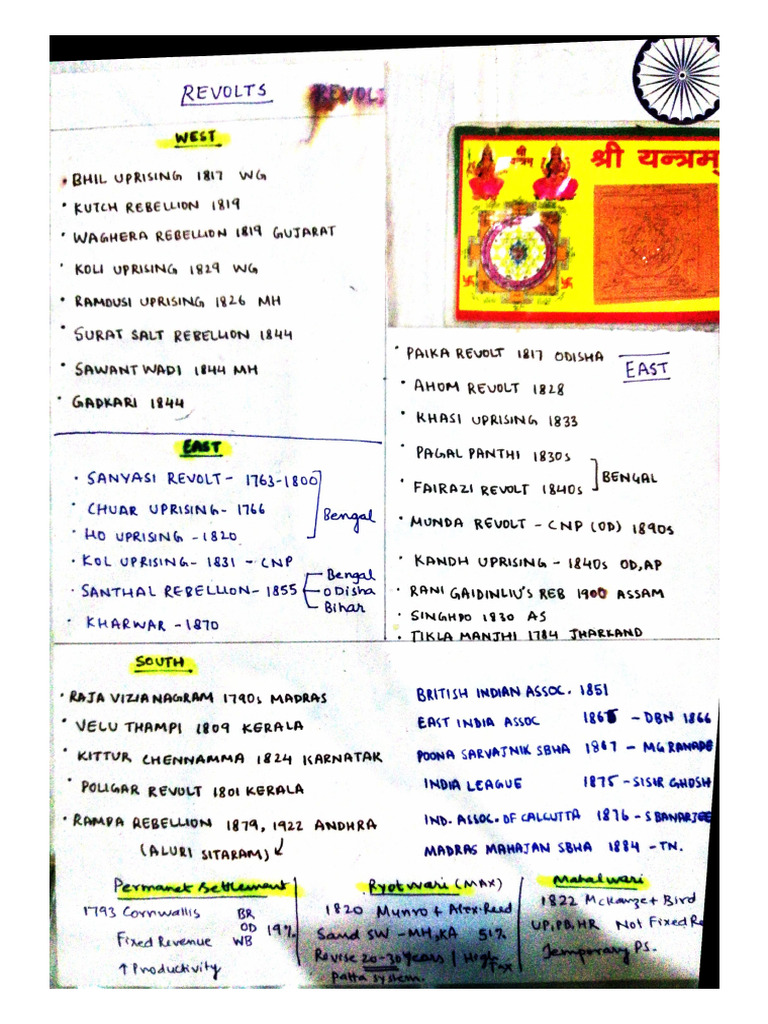 REVOLTS
REVOLT
WEST
• BHIL UPRISING 1817 WG
• KUTCH REBELLION 1819
• WAGHERA REBELLION 1819 GUJARAT
• KOLI UPRISING 1829 WG
• RAMOUSI UPRISING 1826 MH
• SURAT SALT REBELLION 1844
• SAWANT WADI 1844 MH
• GADKARI 1844
श्री यन्त्रम्
EAST
• SANYASI REVOLT - 1763-1800
• CHUAR UPRISING - 1766
• HO UPRISING - 1820
Bengal
• KOL UPRISING - 1831 - CNP
• SANTHAL REBELLION - 1855
Bengal
ODisha
Bihar
• KHARWAR - 1870
• PAIKA REVOLT 1817 ODISHA
EAST
• AHOM REVOLT 1828
• KHASI UPRISING 1833
• PAGAL PANTHI 1830s
• FAIRAZI REVOLT 1840s
BENGAL
• MUNDA REVOLT - CNP (OD) 1890s
• KANDH UPRISING - 1840s OD, AP
• RANI GAIDINLIU'S REB 1900 ASSAM
• SINGHPO 1830 AS
• TIKLA MANJHI 1784 JHARKAND
SOUTH
• RAJA VIZIANAGRAM 1790s MADRAS
• VELU THAMPI 1809 KERALA
• KITTUR CHENNAMMA 1824 KARNATAK
• POLIGAR REVOLT 1801 KERALA
• RAMPA REBELLION 1879, 1922 ANDHRA
(ALURI SITARAM)
BRITISH INDIAN ASSOC. 1851
EAST INDIA ASSOC 1865 - DBN 1866
POONA SARVAJNIK SBHA 1867 - MG RANADE
INDIA LEAGUE 1875 - SISIR GHOSH
IND. ASSOC. OF CALCUTTA 1876 - S BANARJEE
MADRAS MAHAJAN SBHA 1884 - TN.
Permanet Settlement
1793 Cornwallis
Fixed Revenue
↑ Productivity
BR
OD
WB
19%
Ryotwari (MAX)
1820 Munro + Alex. Reed
SW - MH, KA 51%
Revise 20-30 years | High Tax
Patta system.
Mahalwari
1822 McKanze + Bird
UP, PB, HR Not Fixed Re
Temporary PS.